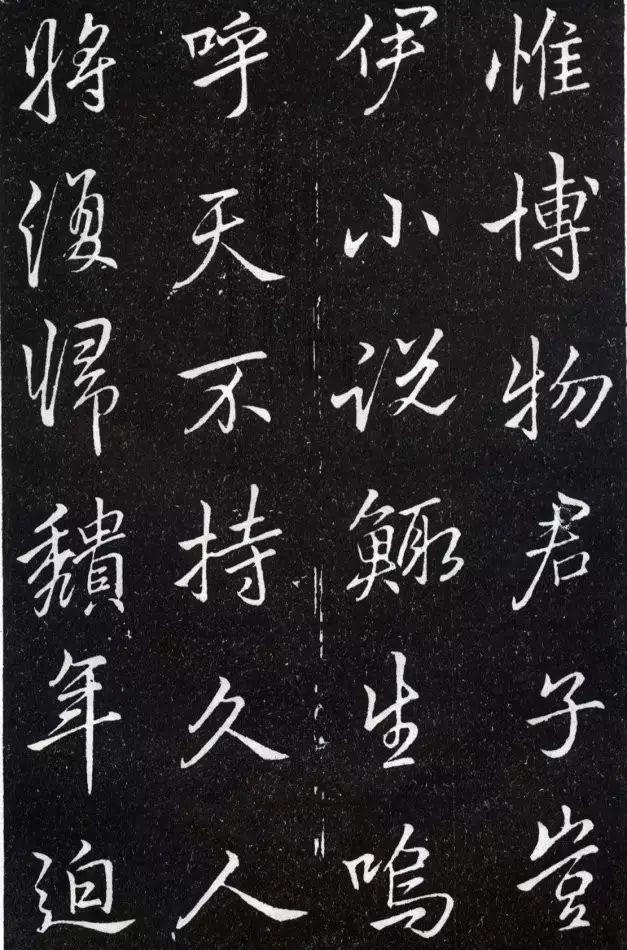 惟博物君子豈
伊小説鯫生嗚
呼天不持久人
將復歸穨年迫